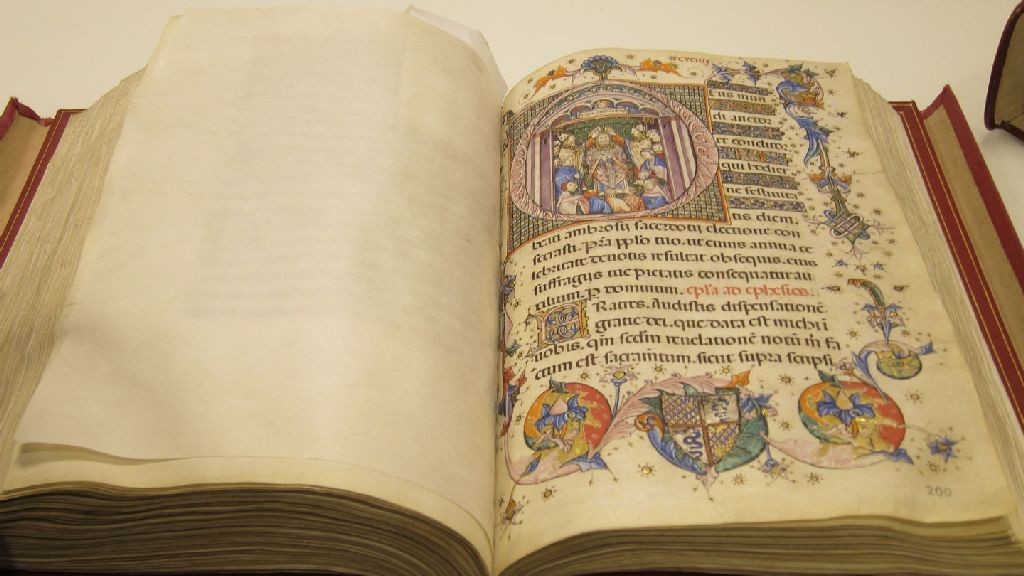 eus mun
di auctor
& conditor
qui hodier
ne festiui
tatis diem.
beati ambrosij sacerdotis electione con
secrasti. Pͣ pplo tuo. ut cuius annua ce
lebritate deuotis resultat obsequijs. eius
suffragijs tue pietatis consequatur au
xilium. P dominum. epl'a ad ephesios.
Ratres. Audistis dispensatione
gratie dei. que data est michi i
uobis. qm scdm reuelatione notu m fa
ctum est sacramtum. sicut supra scripsi
200